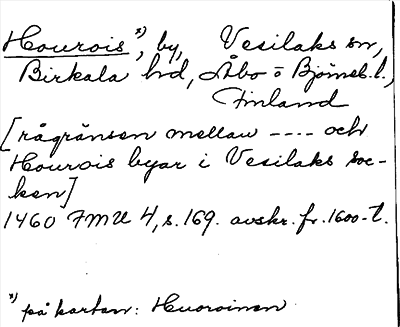 Hourois*), by, Vesilaks sn,
Birkala hd, Åbo o Björneb. l.,
Finland
[rågränsen mellan ---- och
Hourois byar i Vesilaks soc-
ken]
1460 FMU 4, s. 169. avskr. fr. 1600-t.
*) på kartan: Huoroinen